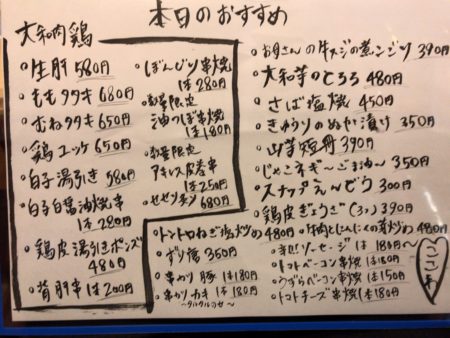 本日のおすすめ
大和肉鶏
・生肝 580円
・ももタタキ 680円
・むねタタキ 650円
・鶏ユッケ 650円
・白子湯引き 580円
・白子白醤油焼き串 1本280円
・鶏皮湯引きポンズ 480円
・背肝串 1本200円
・ぼんじり串焼 1本280円
・数量限定 油つぼ串焼 1本180円
・数量限定 アキレス皮巻串 1本250円
・セセリチリ 680円
・お母さんの牛スジの煮こごり 390円
・大和芋のとろろ 480円
・さば塩焼 450円
・きゅうりのぬか漬け 350円
・山芋短冊 390円
・じゃこネギ〜ごま油〜 350円
・スナップえんどう 300円
・鶏皮ぎょうざ(3ヶ) 390円
・トントロねぎ塩炒め 480円
・牛肉とにんにくの芽炒め 480円
・ずり 350円
・串カツ 豚 1本180円
・串カツ カキ 1本180円
〜タルタルのせ〜
ソーセージ 1本180円〜
・トマトベーコン串焼 1本180円
・うずらベーコン串焼 1本150円
・トマトチーズ串焼 1本180円